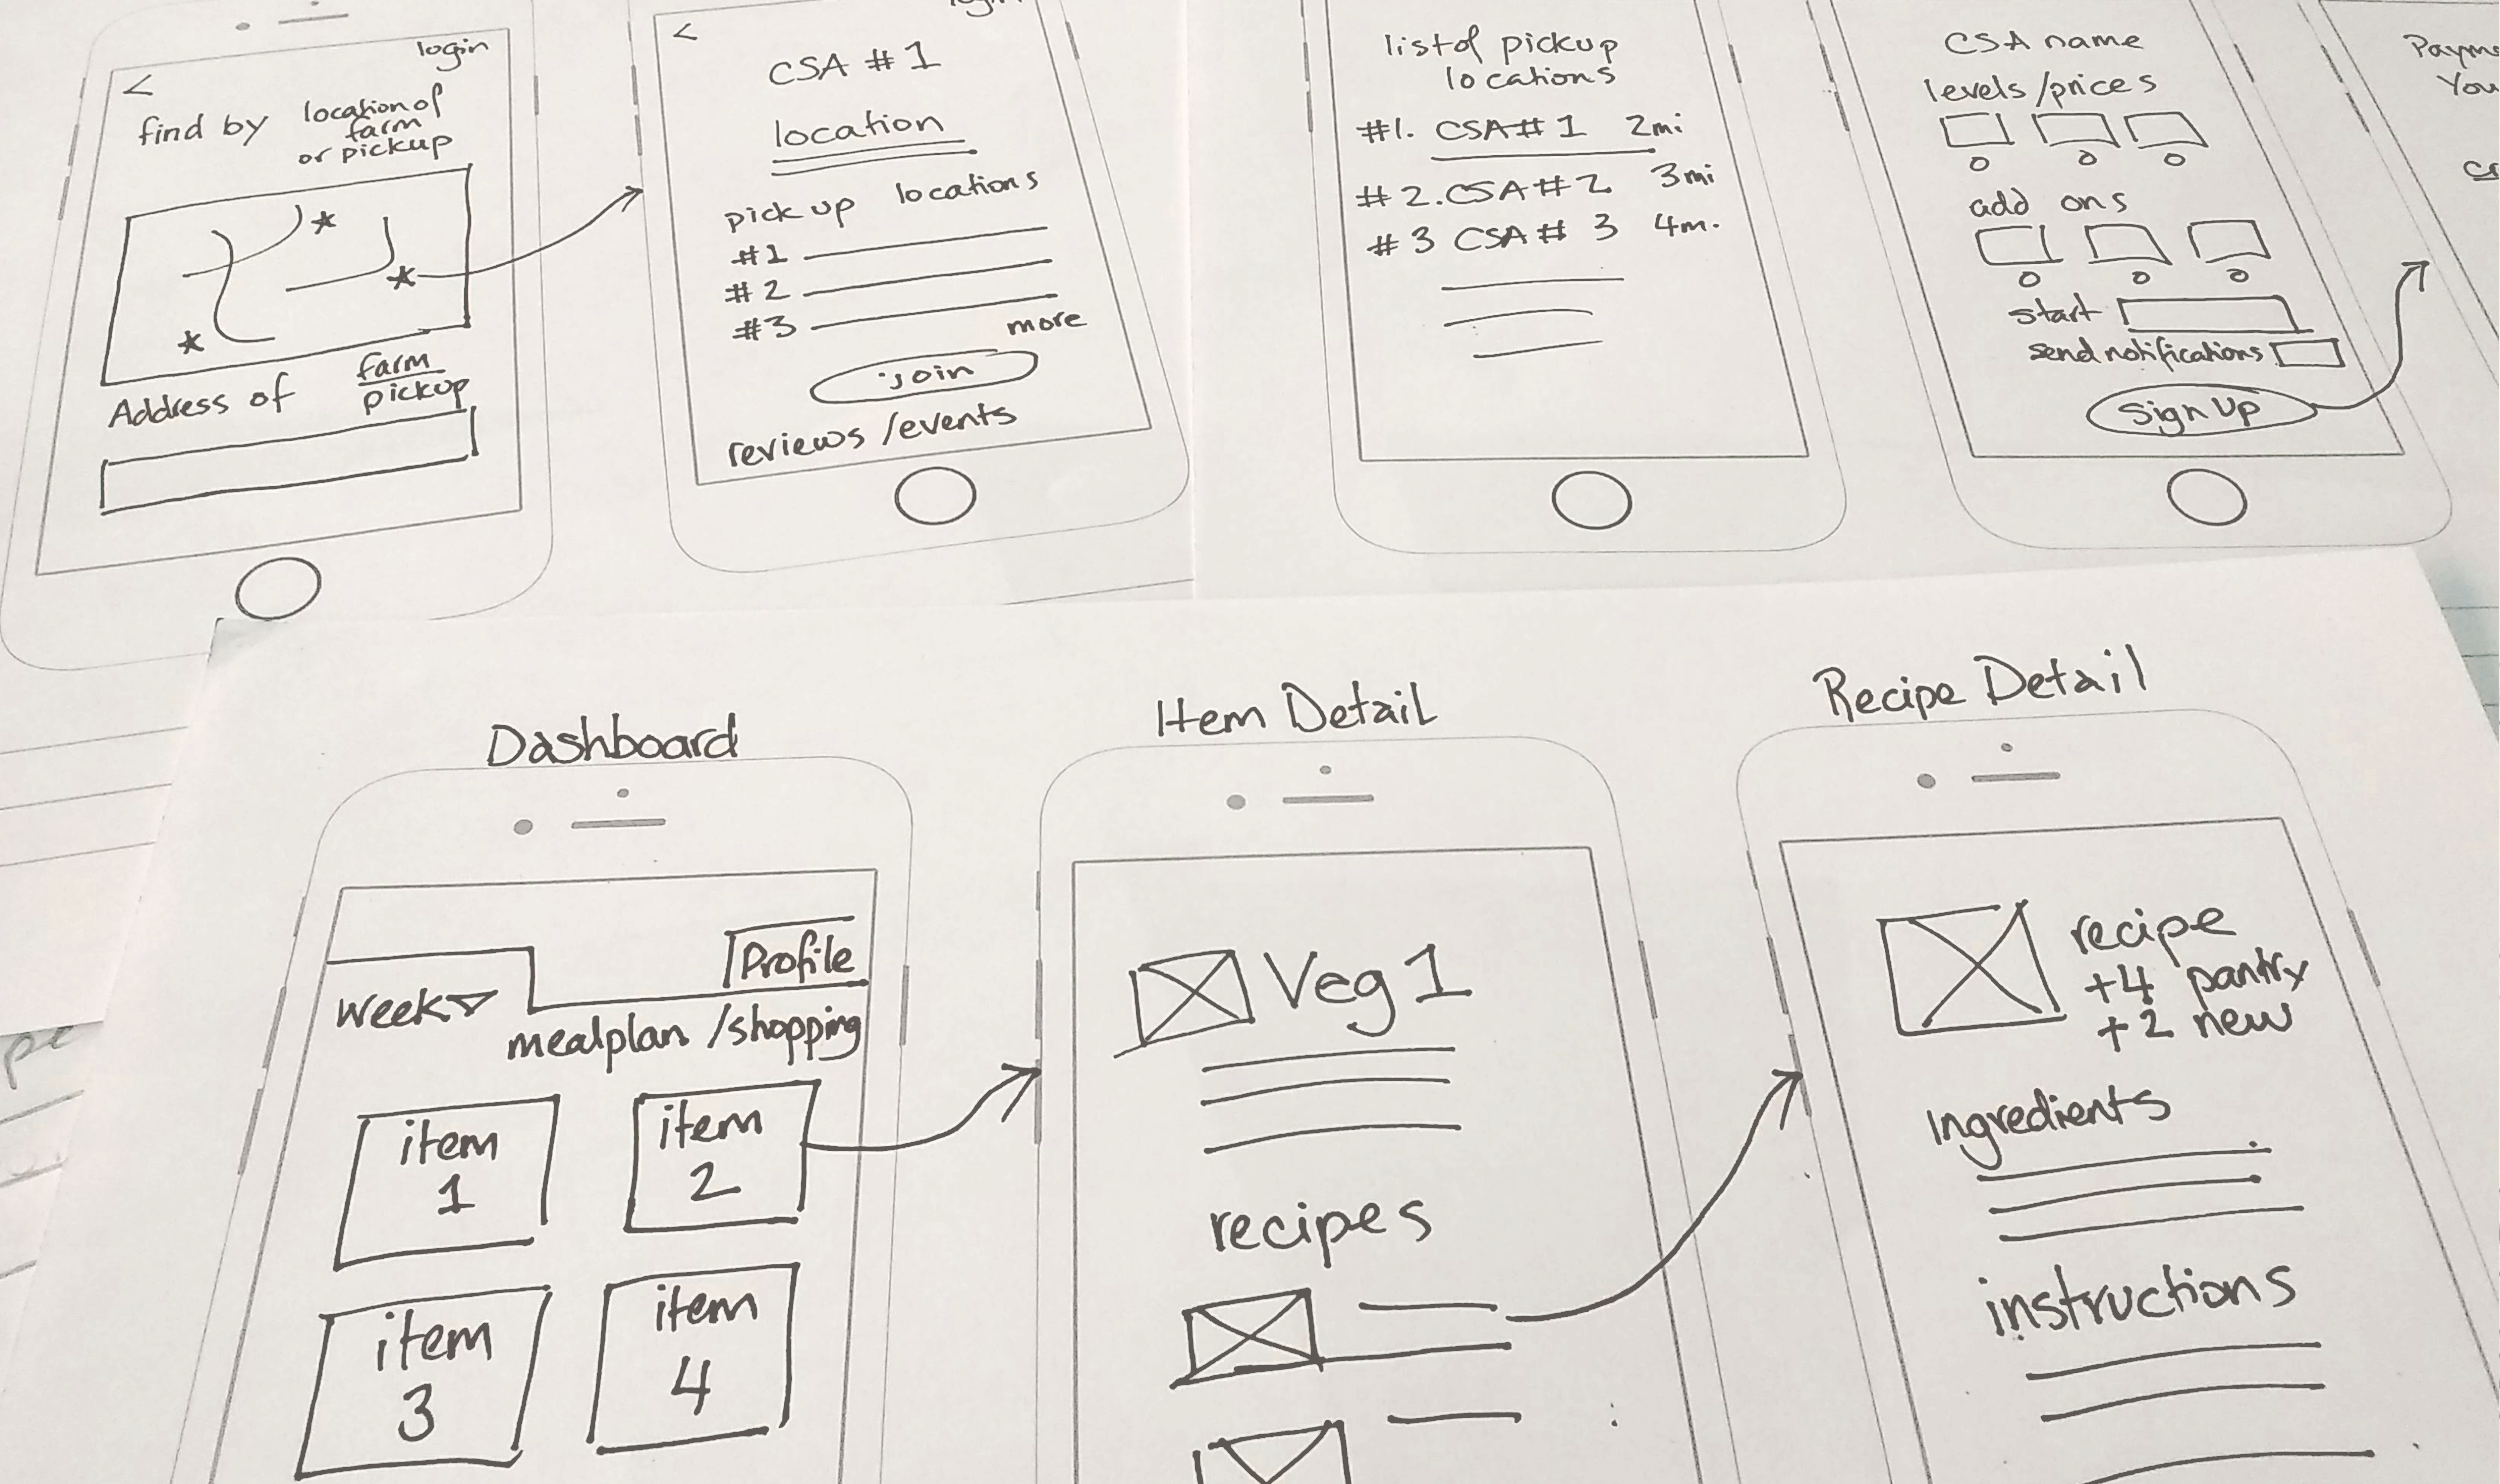 login
<
find by location of
farm
or pickup
Address of farm
pickup
<
CSA #1
location
pick up locations
#1
#2
#3
more
join
reviews /events
list of pickup
locations
#1. CSA# 1 2mi
#2. CSA#2 3mi
#3 CSA# 3 4m.
CSA name
levels/prices
add ons
start
send notifications
Sign Up
You
Dashboard
Profile
week
mealplan /shopping
item
1
item
2
item
3
item
4
Item Detail
Veg 1
recipes
Recipe Detail
recipe
+4 pantry
+2 new
Ingredients
instructions